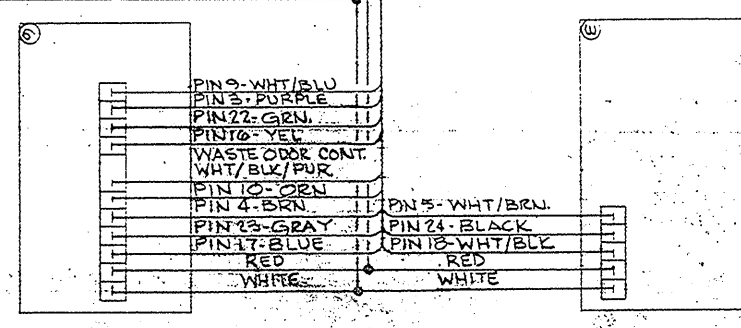 6
PIN 9-WHT/BLU
PIN 3-PURPLE
PIN 22-GRN.
PIN 16-YEL
WASTE ODOR CONT.
WHT/BLK/PUR
PIN 10-ORN
PIN 4-BRN
PIN 23-GRAY
PIN 17-BLUE
RED
WHITE
3
PIN 5-WHT/BRN.
PIN 24-BLACK
PIN 18-WHT/BLK
RED
WHITE